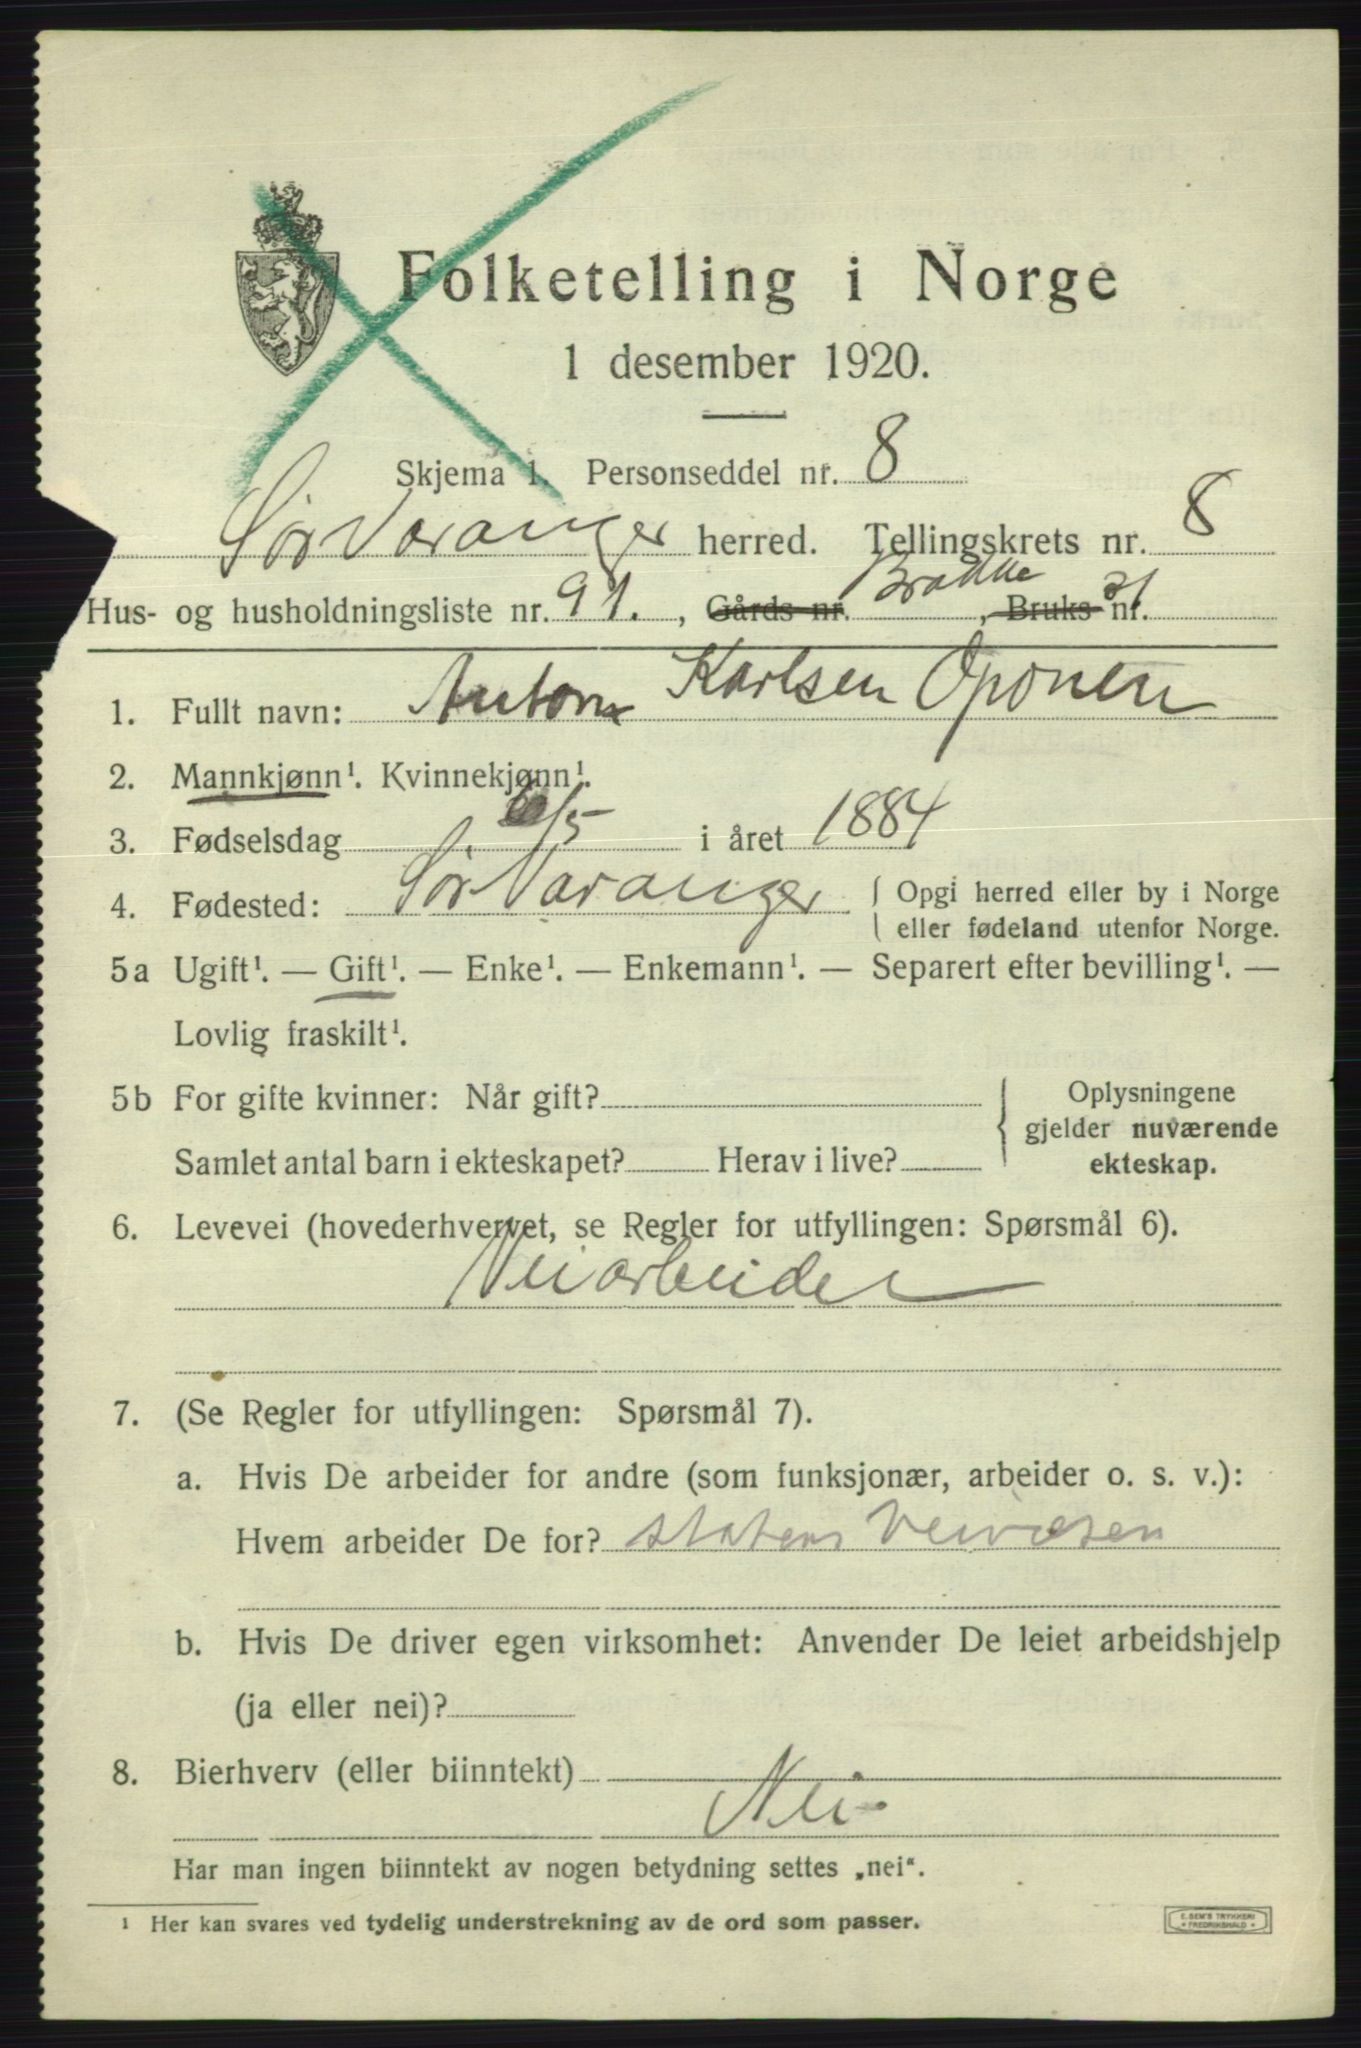 Folketelling i Norge
1 desember 1920.
Skjema 1. Personseddel nr. 8
Sør Varanger herred. Tellingskrets nr. 8
Hus- og husholdningsliste nr. 91., Gårds-nr. Brakke, Bruks-nr. 21
1. Fullt navn: Anton Karlsen Oponen
2. Mannkjønn¹. Kvinnekjønn¹.
3. Fødselsdag /5 i året 1884
4. Fødested: Sør Varanger { Opgi herred eller by i Norge
eller fødeland utenfor Norge.
5a Ugift¹. — Gift¹. — Enke¹. — Enkemann¹. — Separert efter bevilling¹. —
Lovlig fraskilt¹.
5b For gifte kvinner: Når gift? } Oplysningene
gjelder nuværende
Samlet antal barn i ekteskapet? Herav i live? ekteskap.
6. Levevei (hovederhvervet, se Regler for utfyllingen: Spørsmål 6).
Veiarbeider
7. (Se Regler for utfyllingen: Spørsmål 7).
a. Hvis De arbeider for andre (som funksjonær, arbeider o. s. v.):
Hvem arbeider De for? statens Veivæsen
b. Hvis De driver egen virksomhet: Anvender De leiet arbeidshjelp
(ja eller nei)?
8. Bierhverv (eller biinntekt)
Nei
Har man ingen biinntekt av nogen betydning settes „nei“.
¹ Her kan svares ved tydelig understrekning av de ord som passer.
E. SEM'S TRYKKERI
* FREDRIKSHALD *